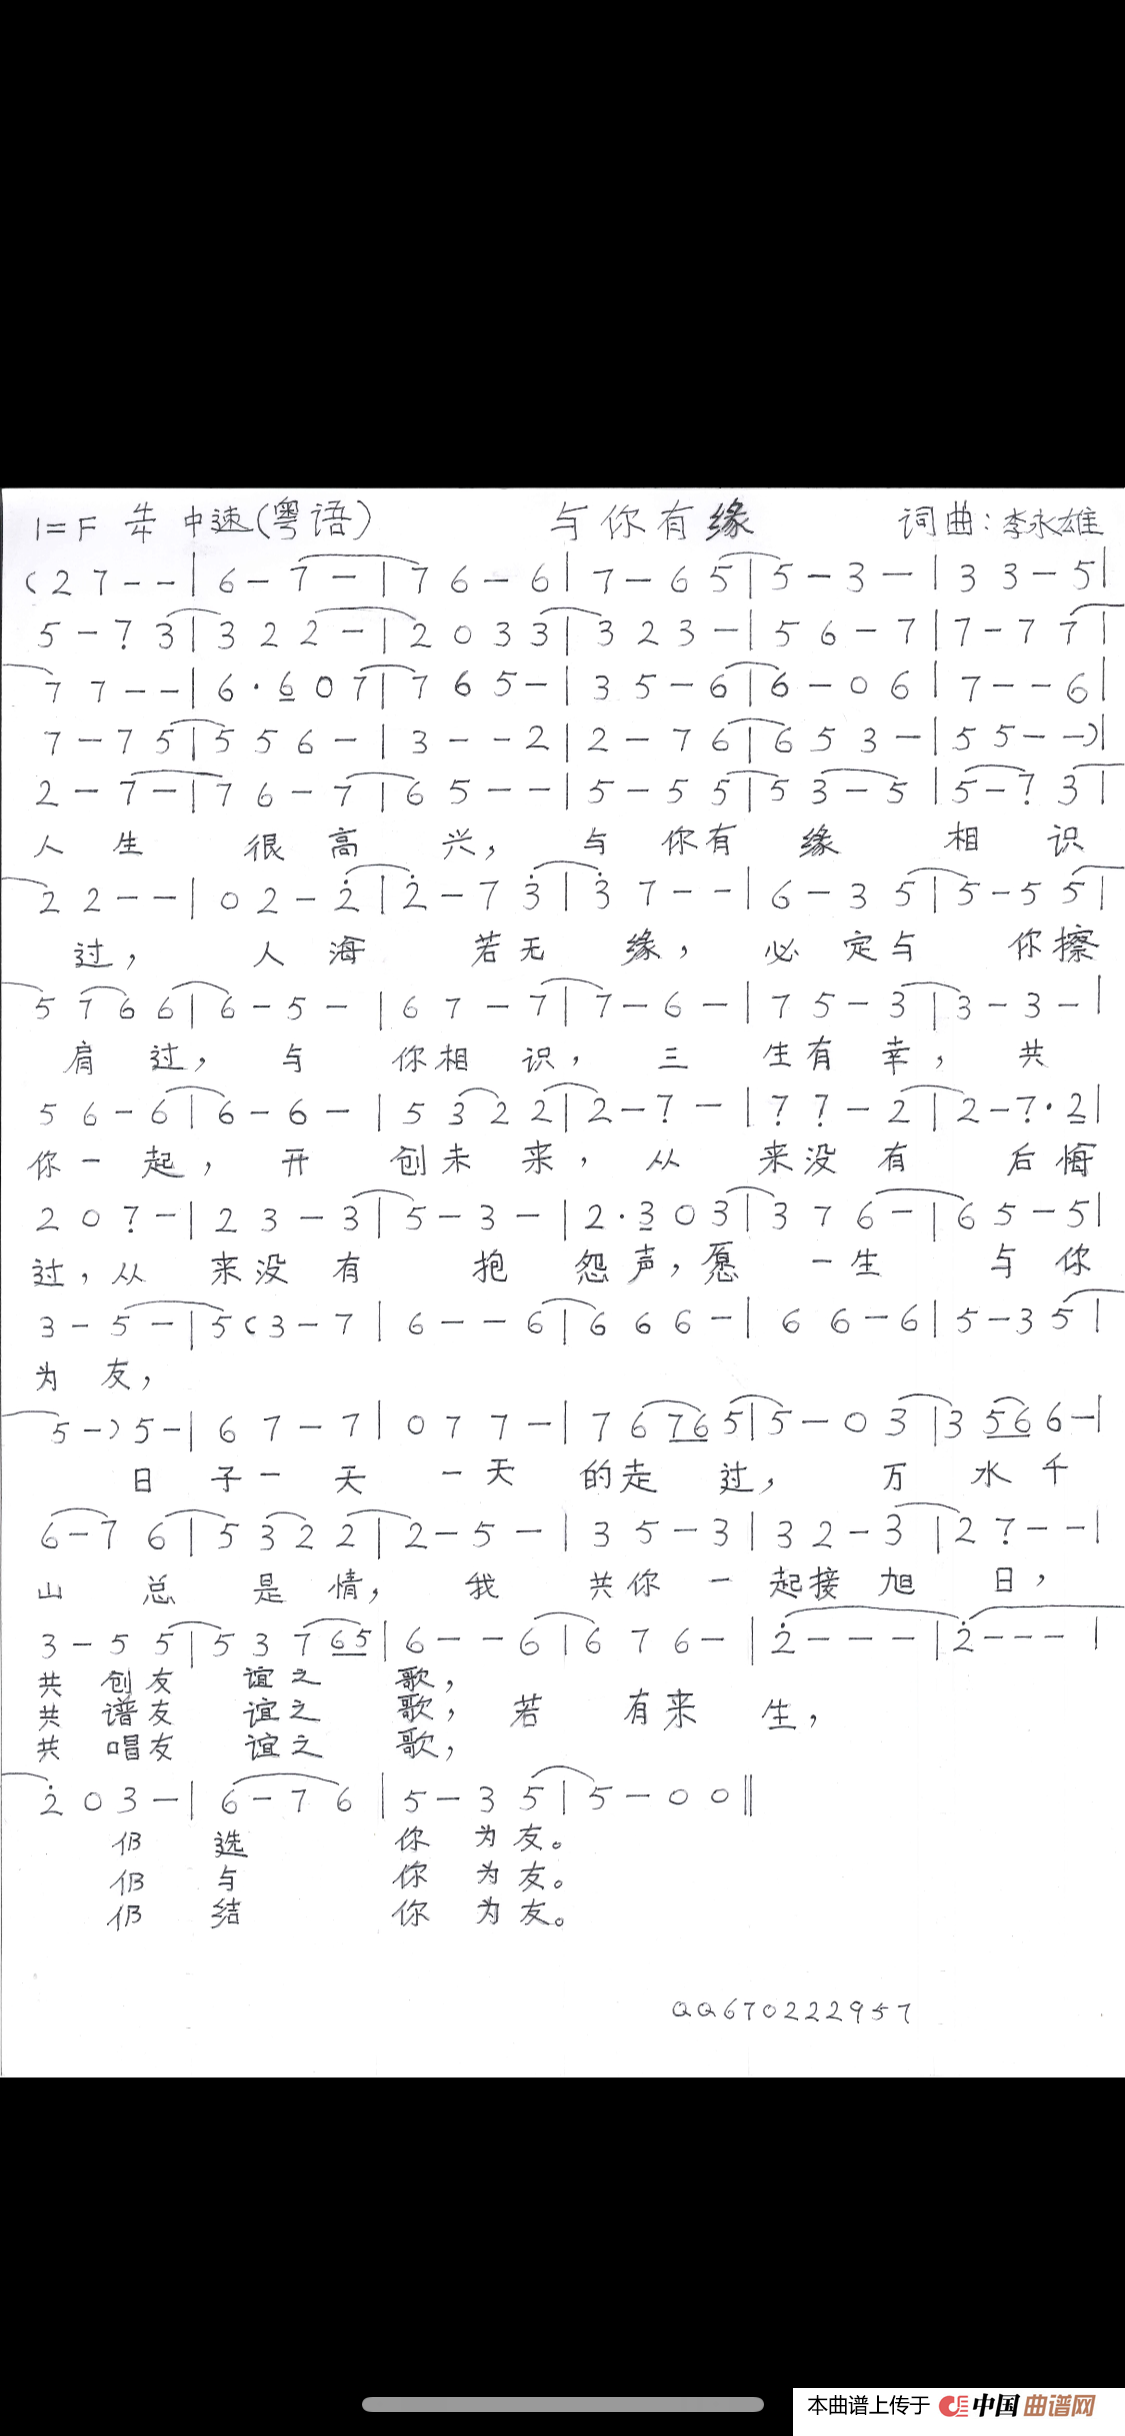 1=F 4/4 中速(粤语) 与你有缘 词曲:李永雄
(2 7 - - | 6 - 7 - | 7 6 - 6 | 7 - 6 5 | 5 - 3 - | 3 3 - 5 |
5 - 7̣ 3 | 3 2 2 - | 2 0 3 3 | 3 2 3 - | 5 6 - 7 | 7 - 7 7 |
7 7 - - | 6 · 6 0 7 | 7 6 5 - | 3 5 - 6 | 6 - 0 6 | 7 - - 6 |
7 - 7 5 | 5 5 6 - | 3 - - 2 | 2 - 7 6 | 6 5 3 - | 5 5 - -) |
2 - 7 - | 7 6 - 7 | 6 5 - - | 5 - 5 5 | 5 3 - 5 | 5 - 7̣ 3 |
人 生 很 高 兴, 与 你有 缘 相 识
2 2 - - | 0 2 - 2̇ | 2̇ - 7 3̇ | 3̇ 7 - - | 6 - 3 5 | 5 - 5 5 |
过, 人 海 若无 缘, 必 定与 你擦
5 7 6 6 | 6 - 5 - | 6 7 - 7 | 7 - 6 - | 7 5 - 3 | 3 - 3 - |
肩 过, 与 你相 识, 三 生有 幸, 共
5 6 - 6 | 6 - 6 - | 5 3 2 2 | 2 - 7̣ - | 7̣ 7̣ - 2 | 2 - 7̣ · 2 |
你一 起, 开 创未 来, 从 来没 有 后悔
2 0 7̣ - | 2 3 - 3 | 5 - 3 - | 2 · 3 0 3 | 3 7 6 - | 6 5 - 5 |
过,从 来没 有 抱 怨声,愿 一生 与你
3 - 5 - | 5 (3 - 7 | 6 - - 6 | 6 6 6 - | 6 6 - 6 | 5 - 3 5 |
为 友,
5 -) 5 - | 6 7 - 7 | 0 7 7 - | 7 6 76 5 | 5 - 0 3 | 3 56 6 - |
日 子一 天 一天 的走 过, 万 水 千
6 - 7 6 | 5 3 2 2 | 2 - 5 - | 3 5 - 3 | 3 2 - 3 | 2 7̣ - - |
山 总 是 情, 我 共你 一 起接 旭 日,
3 - 5 5 | 5 3 7 65 | 6 - - 6 | 6 7 6 - | 2̇ - - - | 2̇ - - - |
共 创友 谊之 歌,
共 谱友 谊之 歌, 若 有来 生,
共 唱友 谊之 歌,
2̇ 0 3 - | 6 - 7 6 | 5 - 3 5 | 5 - 0 0 ‖
仍 选 你 为友。
仍 与 你 为友。
仍 结 你 为友。
QQ670222957
本曲谱上传于 中国曲谱网